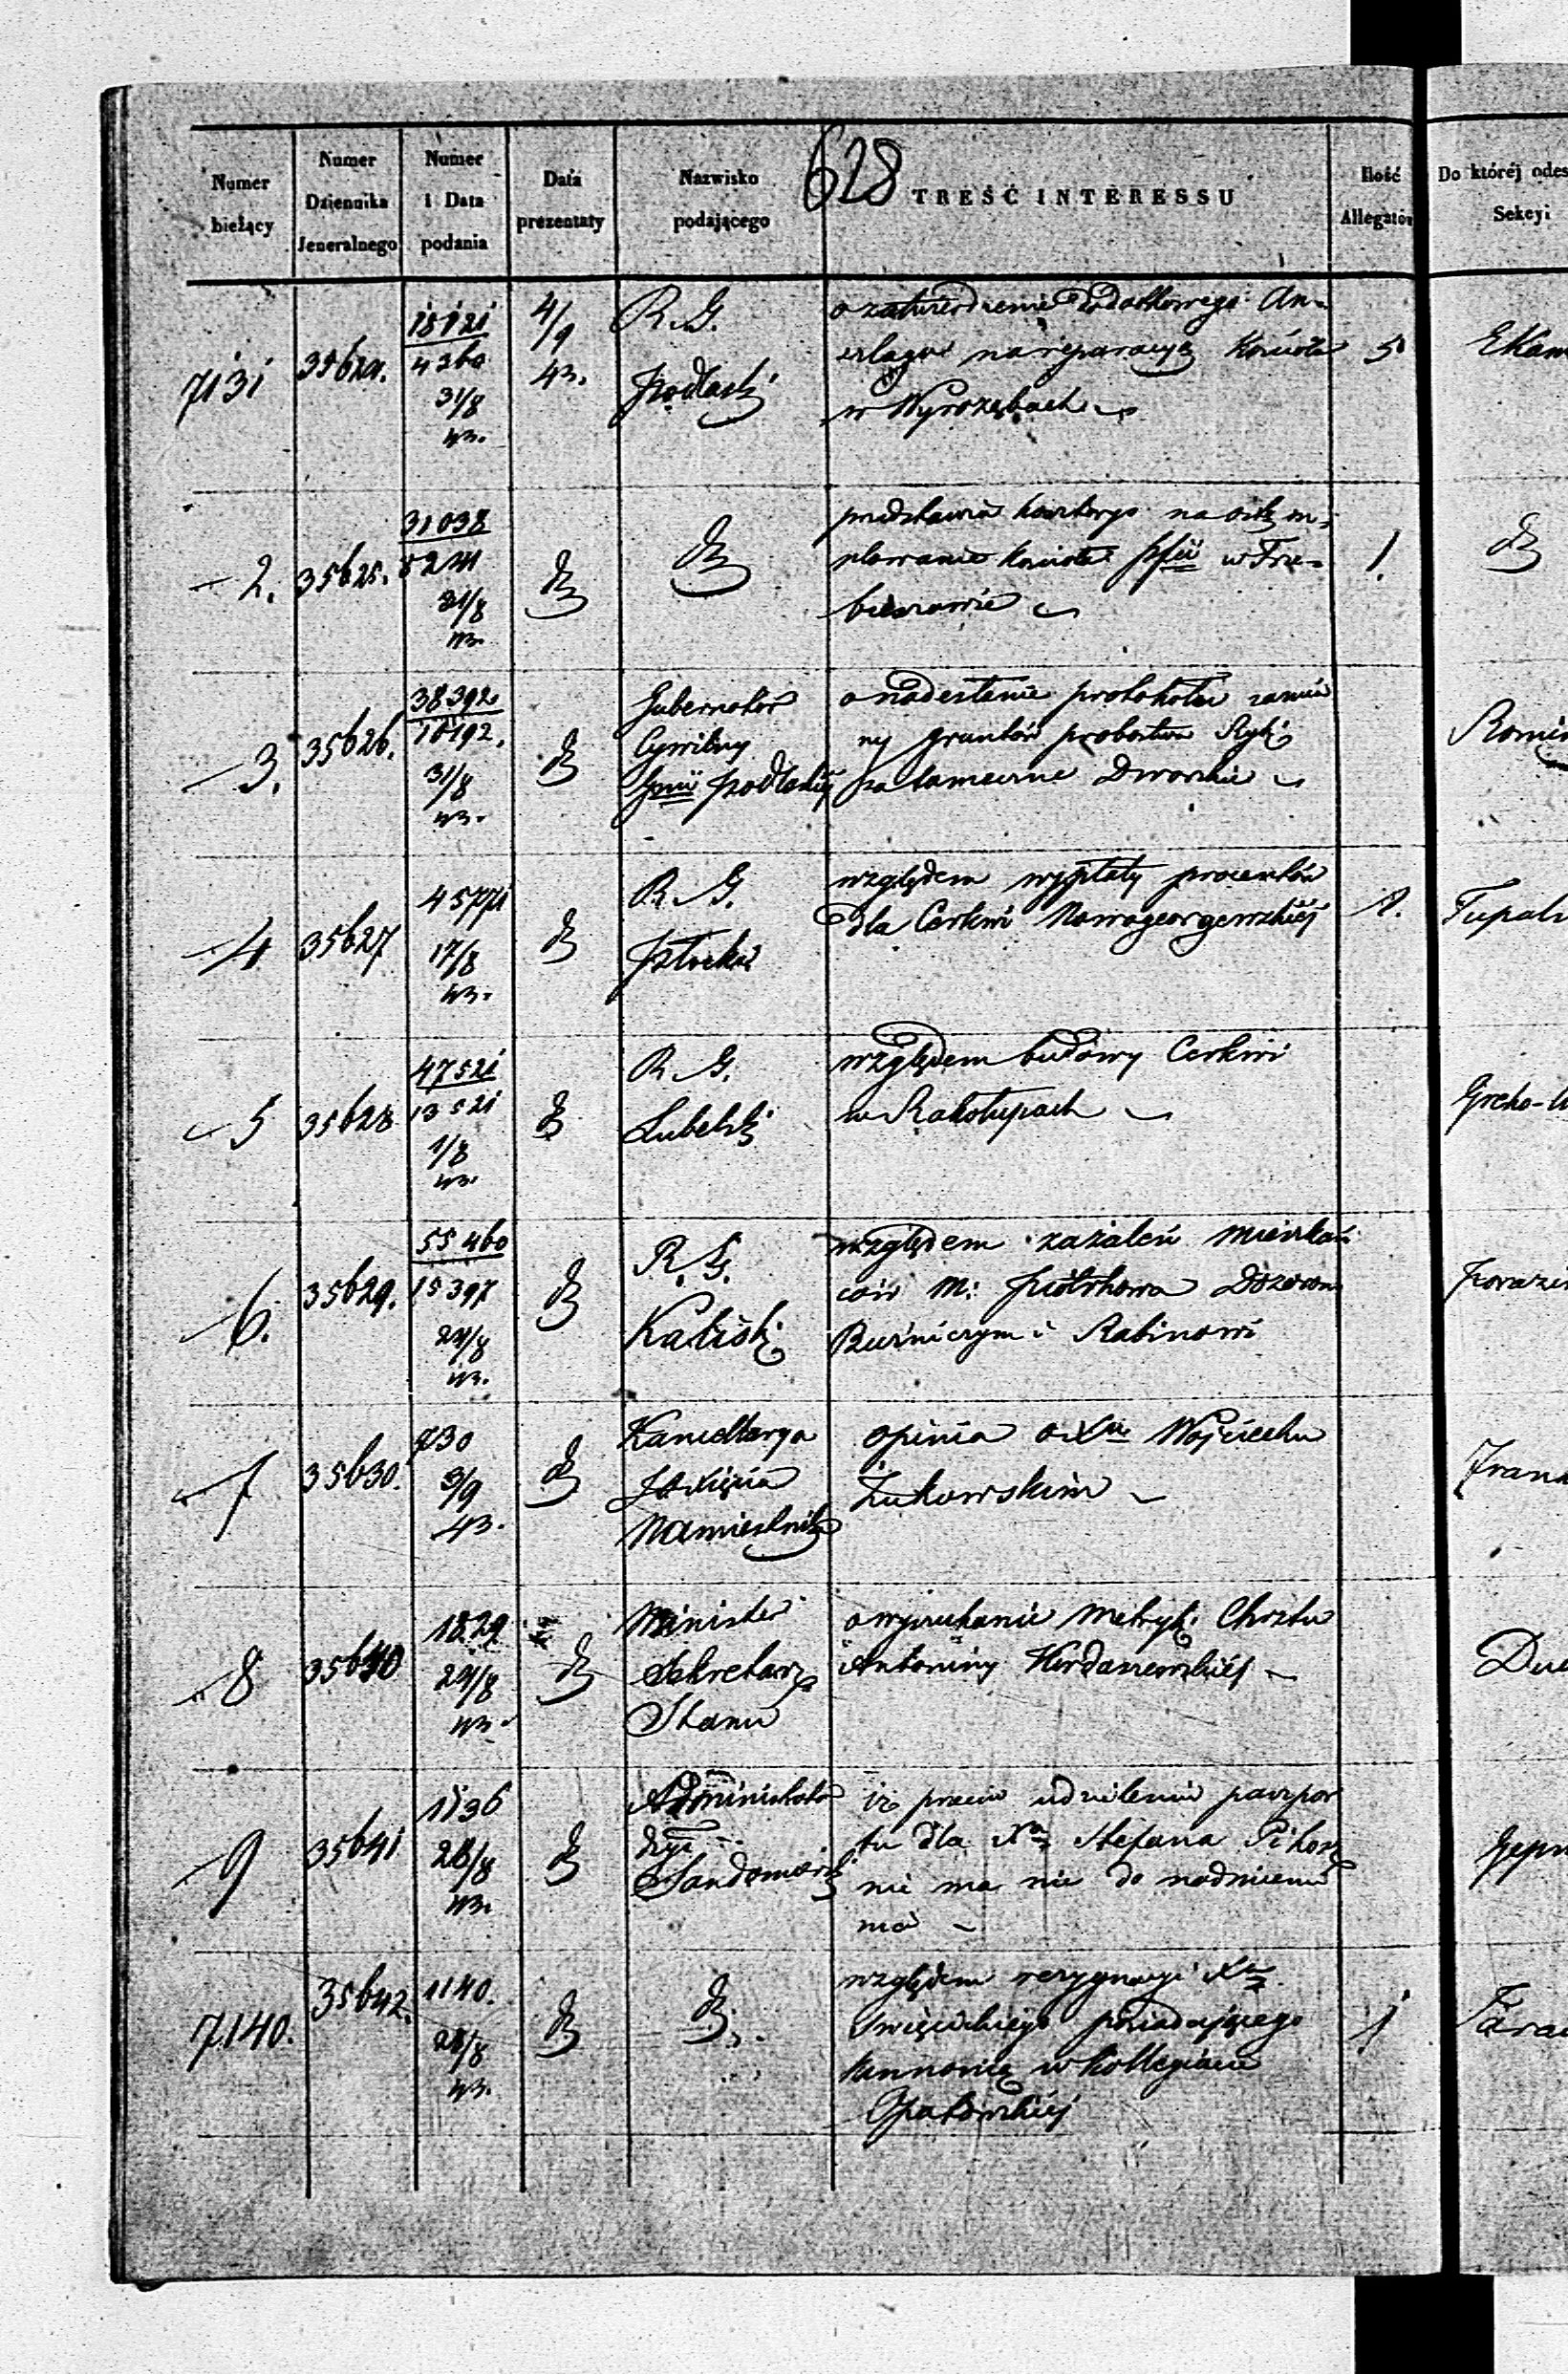 628
Numer bieżący
Numer Dziennika Jeneralnego
Numer i Data podania
Data prezentaty
Nazwisko podającego
TREŚĆ INTERESSU
Ilość Allegatów
Do której odes
Sekcyi
7131
35624.
18121
4360
31/8
43.
4/9
43.
R. G.
Podlaski
o zatwierdzenie Dodatkowego An-
szlagu na reparacyę Kościoła
w Wyrozębach
5
2.
35625.
31038
5241
31/8
43.
przedstawia kosztorys na
Kościoła pfii w Trze-
bieszowie
1.
3.
35626.
38392
10192.
31/8
43.
Gubernator
Cywilny
Gnii Podlaskiej
o nadesłanie protokółu zamia
ny gruntów probostwa Ryki
za tameczne Dworskie
4
35627
45771
17/8
43.
R. G.
Płocki
względem wypłaty procentów
dla Cerkwi Nowogeorgewskiéj
1.
Tupals
5
35628
47521
13521
1/8
43.
R. G.
Lubelski
względem budowy Cerkwi
w Rakołupach
Greko-
6.
35629.
55460
15397
24/8
43.
R. G.
Kaliski
względem zażaleń mieszkań
ców M: Piotrkowa Dozorom
Bużniczym i Rabinowi
7
35630.
730
3/9
43.
Kancellarya
JO Xięcia
Namiestnika
opinia o Xu Wojciechu
Żukowskim
Fran
8
35640
1829
24/8
43.
Minister
Sekretarz
Stanu
o wyszukanie metryki Chrztu
Antoniny
9
35641
1136
28/8
43.
Administrator
Dyi
Sandomierski
iż przeciw udzieleniu paszpor
tu dla Xa Stefana
nie ma nic do nadmienie
nia
7140.
35642.
1140.
28/8
43.
względem rezygnacyi Xa
Święcickiego posiadającego
kannonię w Kollegiacie
Opatowskiéj
1